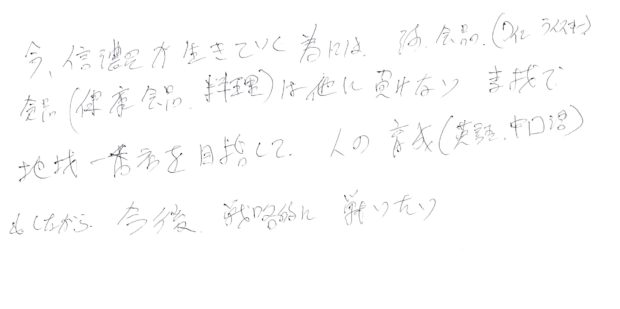 今、信濃屋が生きていく為には、酒、食品、(ワイン ウイスキー)
食品(健康食品、料理)は他に負けない 意識で
地域一番店を目指して、人の育成(英語、中国語)
もしながら、今後、戦略的に 戦いたい